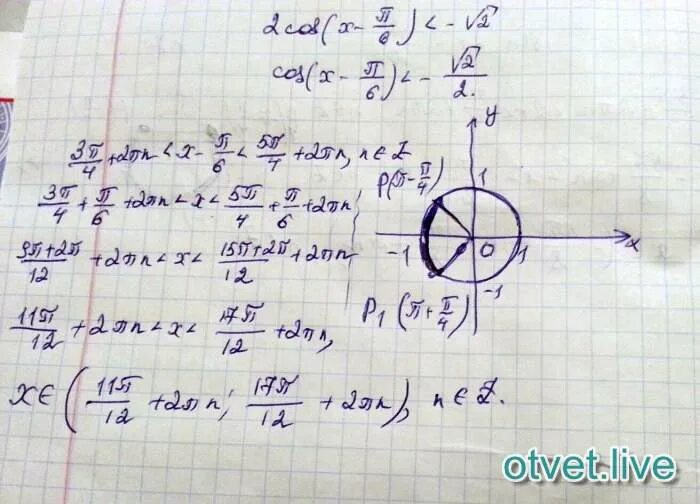 2cos(x - π/6) < -√2
cos(x - π/6) < - √2/2.
3π/4 + 2πn < x - π/6 < 5π/4 + 2πn, n ∈ Z
3π/4 + π/6 + 2πn < x < 5π/4 + π/6 + 2πn
9π+2π/12 + 2πn < x < 15π+2π/12 + 2πn
11π/12 + 2πn < x < 17π/12 + 2πn,
x ∈ (11π/12 + 2πn; 17π/12 + 2πn), n ∈ Z.
y
1
P(π - π/4)
-1 0 1 x
-1
P1 (π + π/4)
otvet.live